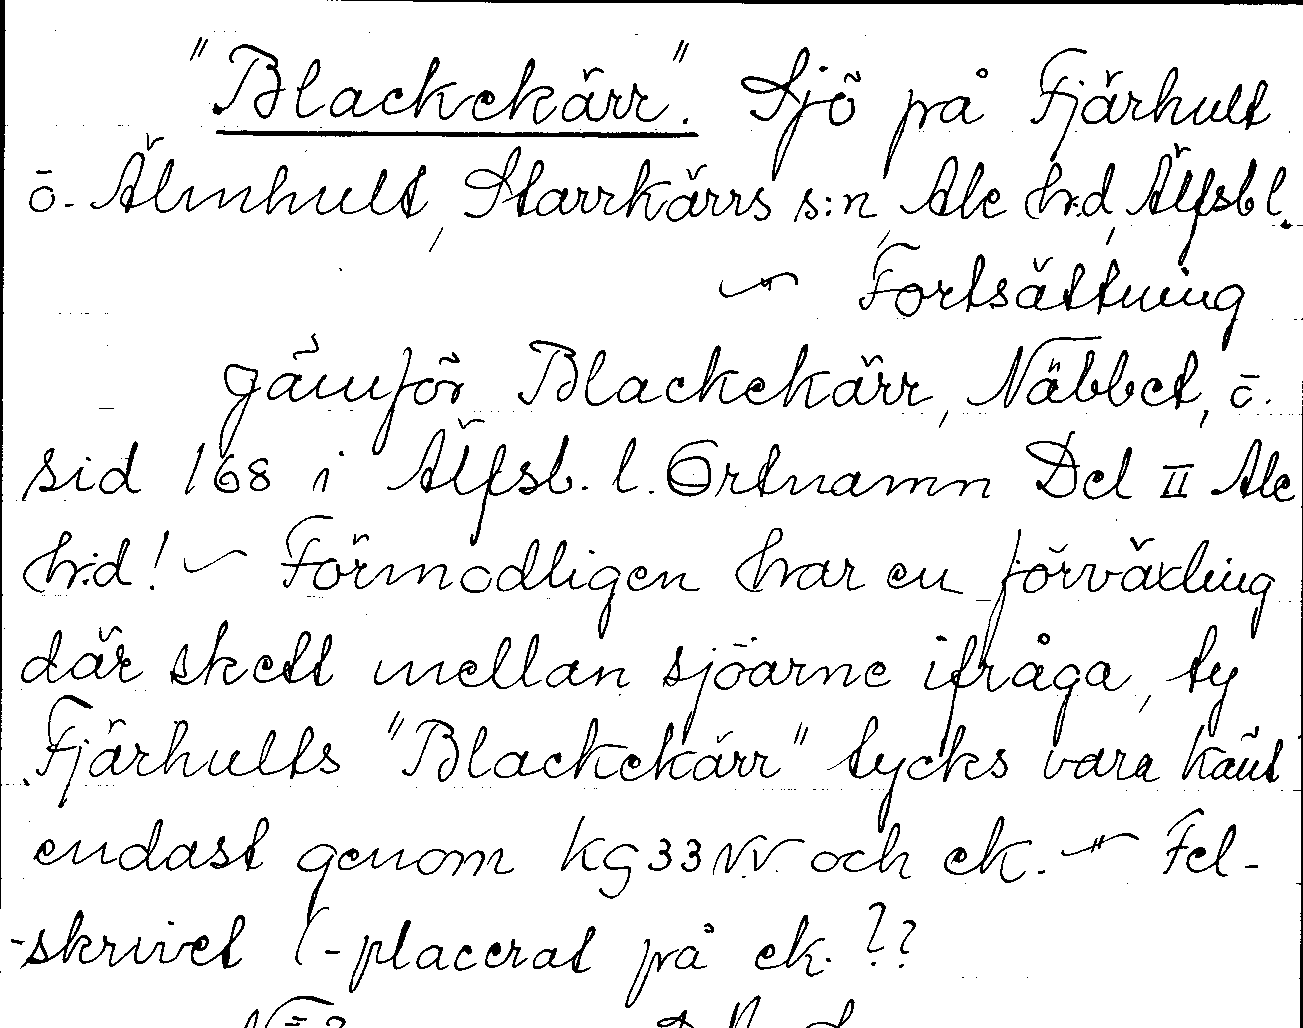 "Blackekärr". Sjö på Fjärhult
o. Älmhult, Starrkärrs s:n, Ale h:d, Älfsb l.
– Fortsättning
jämför Blackekärr, Näbbet, o.
sid 168 i Älfsb. l. Ortnamn Del II Ale
h:d! – Förmodligen har en förväxling
där skett mellan sjöarne ifråga, ty
Fjärhults "Blackekärr" tycks vara känt
endast genom KG 33 NV och ek. – Fel-
-skrivet (-placerat på ek. ??